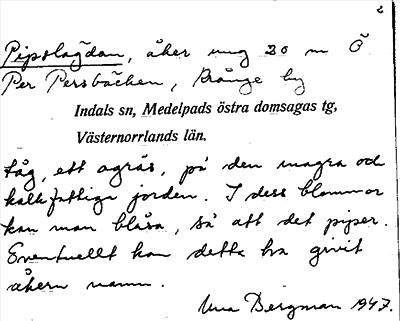 2
Pipslägdan, åker omg 20 m Ö
Per Persbäcken, Krånge by
Indals sn, Medelpads östra domsagas tg,
Västernorrlands län.
tåg, ett ogräs, på den magra och
kalkfattiga jorden. I dess blommor
kan man blåsa, så att det piper.
Eventuellt kan detta ha givit
åkern namn.
Una Bergman 1947.